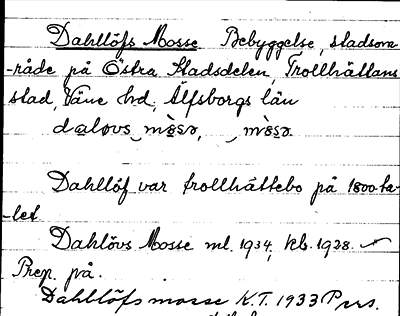 Dahllöfs Mosse Bebyggelse, stadsom-
-råde på Östra Stadsdelen, Trollhättans
stad, Väne hd, Älfsborgs län
dalovs mosə, mosə.
Dahllöf var trollhättebo på 1800ta-
-let
Dahlövs Mosse ml. 1934, kb. 1928.
Prep. på.
Dahllöfs mosse K.T. 1933